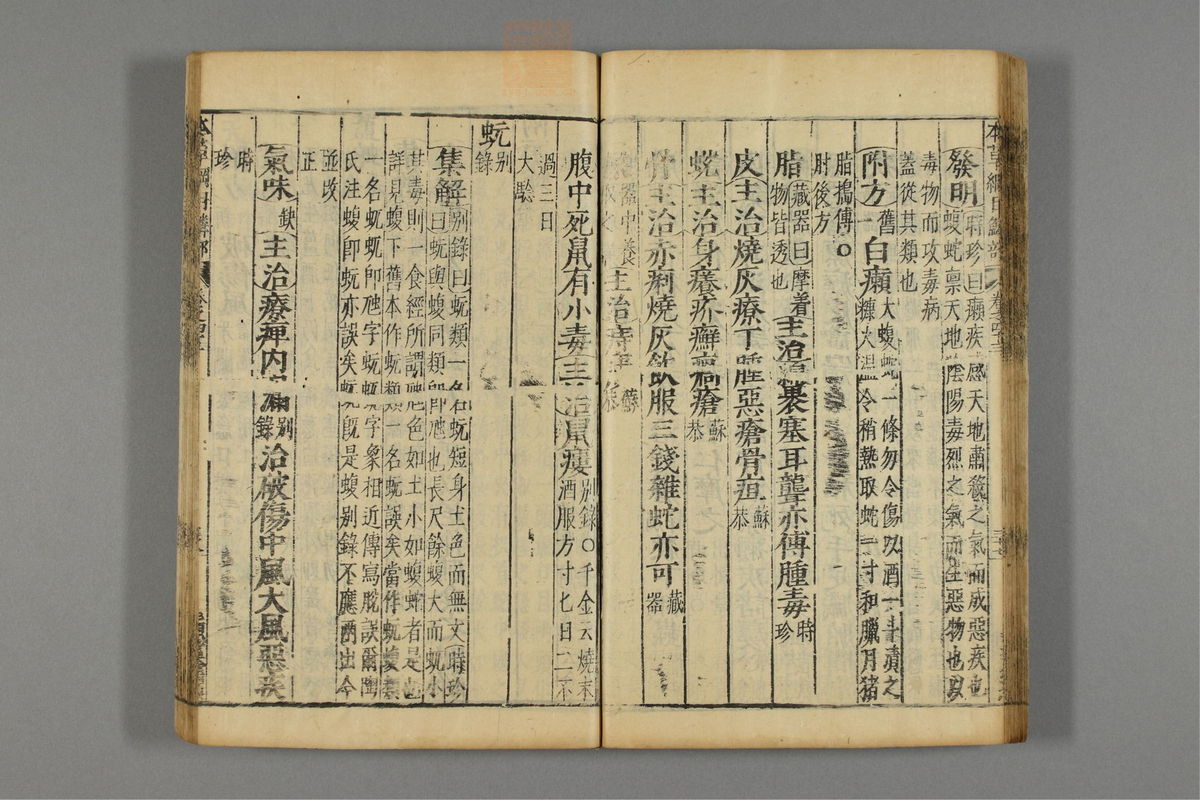 發明時珍曰癩疾感天地肅殺之氣而成惡疾也
蝮蛇禀天地陰陽毒烈之氣而生惡物也以
毒物而攻毒病
蓋從其類也
附方舊一白癩大蝮蛇一條勿令傷以酒一斗漬之
糠火溫令稍熱取蛇一寸和臘月猪
脂搗傅○
肘後方
脂藏器曰摩着
物皆透也主治綿裹塞耳聾亦傅腫毒時
珍
皮主治燒灰療丁腫惡瘡骨疽蘇
恭
蛻主治身癢疥癬瘑瘡蘇
恭
骨主治赤痢燒灰飲服三錢雜蛇亦可藏
器
器中養
主治
腹中死鼠有小毒主治鼠瘻別錄○千金云燒末
酒服方寸七日二不
過三日
大驗
蚖別
錄
集解別錄曰蚖類一名蚖短身土色而無文時珍
曰蚖與蝮同類即虺也長尺餘蝮大而蚖小
其毒則一食經所謂虺色如土小如蝮蛇者是也
詳見蝮下舊本作蚖類一名蚖誤矣當作蚖蝮類
一名蚖蚖即虺字蚖字象相近傳寫脫誤爾陶
氏注蝮即蚖亦誤矣蚖既是蝮別錄不應兩出今
並改
正
氣味缺主治療痺內漏別
錄治破傷中風大風惡疾
時
珍